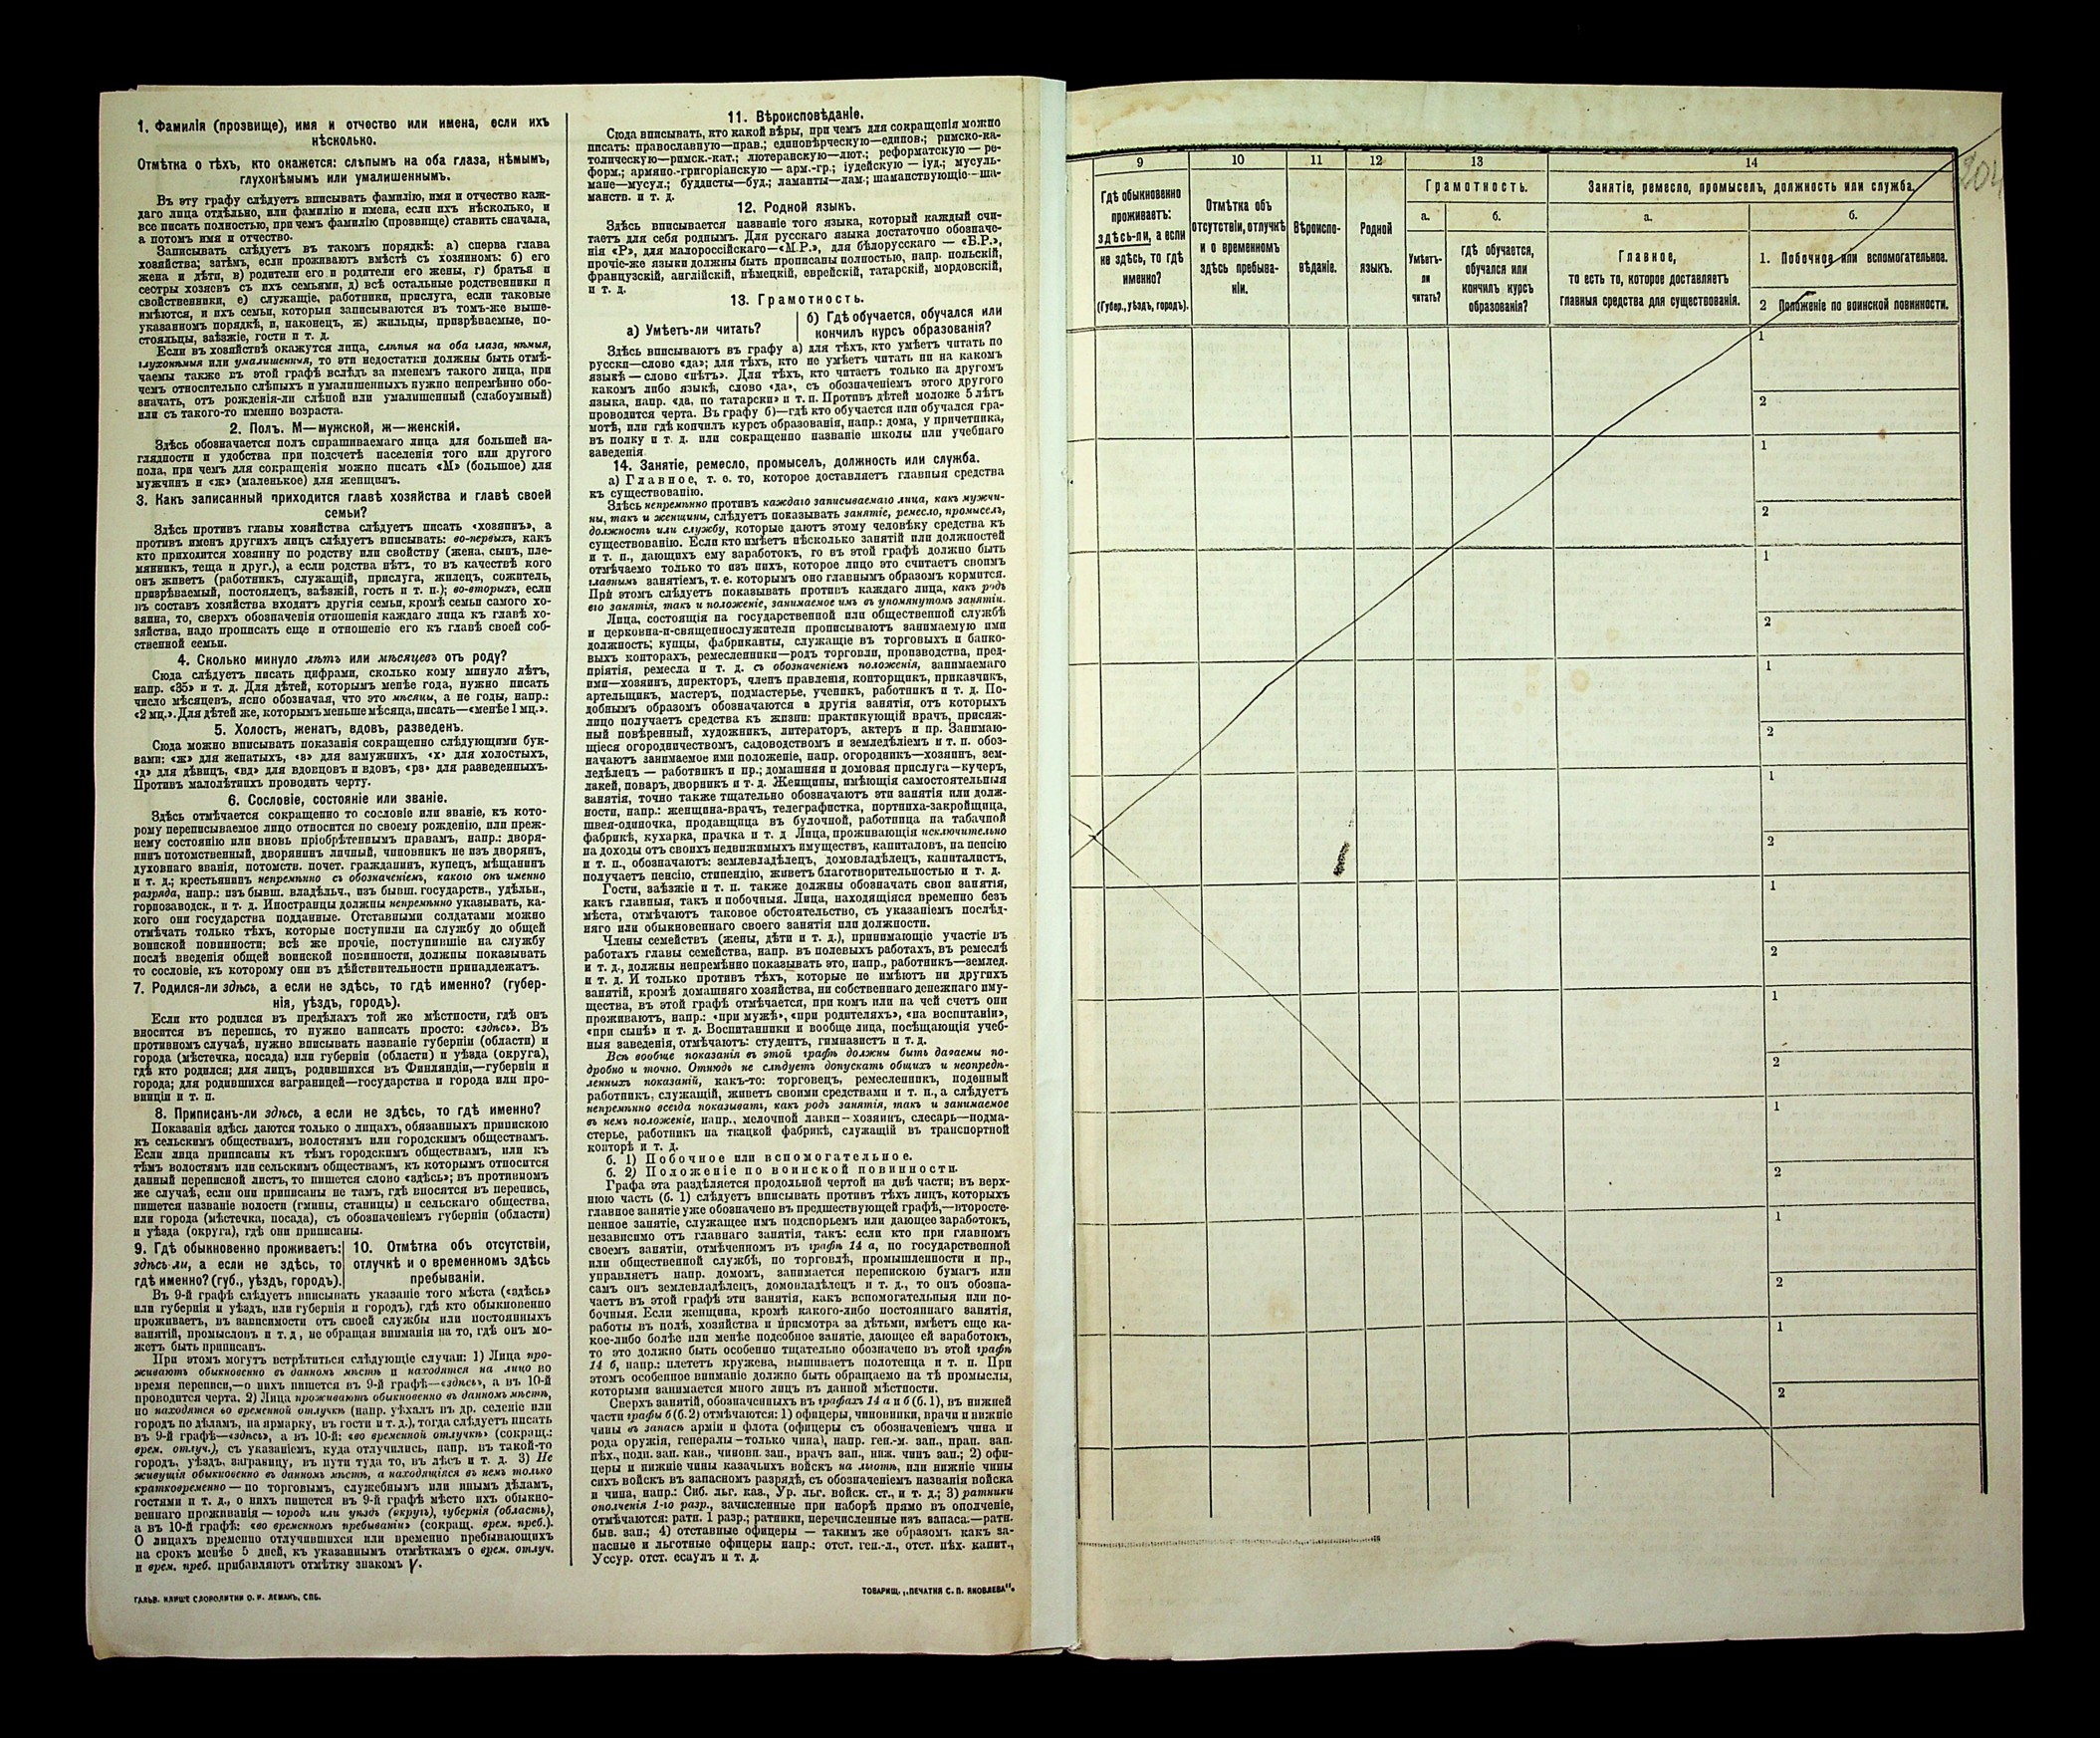 1. Фамилія (прозвище), имя и отчество или имена, если ихъ
нѣсколько.
Отмѣтка о тѣхъ, кто окажется: слѣпымъ на оба глаза, нѣмымъ,
глухонѣмымъ или умалишеннымъ.
Въ эту графу слѣдуетъ вписывать фамилію, имя и отчество каж-
даго лица отдѣльно, или фамилію и имена, если ихъ нѣсколько, и
все писать полностью, при чемъ фамилію (прозвище) ставить сначала,
а потомъ имя и отчество.
Записывать слѣдуетъ въ такомъ порядкѣ: а) сперва глава
хозяйства; затѣмъ, если проживаютъ вмѣстѣ съ хозяиномъ: б) его
жена и дѣти, в) родители его и родители его жены, г) братья и
сестры хозяевъ съ ихъ семьями, д) всѣ остальные родственники и
свойственники, е) служащіе, работники, прислуга, если таковые
имѣются, и ихъ семьи, которыя записываются въ томъ-же выше-
указанномъ порядкѣ, и, наконецъ, ж) жильцы, призрѣваемые, по-
стояльцы, заѣзжіе, гости и т. д.
Если въ хозяйствѣ окажутся лица, слѣпыя на оба глаза, нѣмыя,
глухонѣмыя или умалишенныя, то эти недостатки должны быть отмѣ-
чаемы также въ этой графѣ вслѣдъ за именемъ такого лица, при
чемъ относительно слѣпыхъ и умалишенныхъ нужно непремѣнно обо-
значать, отъ рожденія-ли слѣпой или умалишенный (слабоумный)
или съ такого-то именно возраста.
2. Полъ. М—мужской, ж—женскій.
Здѣсь обозначается полъ спрашиваемаго лица для большей на-
глядности и удобства при подсчетѣ населенія того или другого
пола, при чемъ для сокращенія можно писать «М» (большое) для
мужчинъ и «ж» (маленькое) для женщинъ.
3. Какъ записанный приходится главѣ хозяйства и главѣ своей
семьи?
Здѣсь противъ главы хозяйства слѣдуетъ писать «хозяинъ», а
противъ именъ другихъ лицъ слѣдуетъ вписывать: во-первыхъ, какъ
кто приходится хозяину по родству или свойству (жена, сынъ, пле-
мянникъ, теща и друг.), а если родства нѣтъ, то въ качествѣ кого
онъ живетъ (работникъ, служащій, прислуга, жилецъ, сожитель,
призрѣваемый, постоялецъ, заѣзжій, гость и т. п.); во-вторыхъ, если
въ составъ хозяйства входятъ другія семьи, кромѣ семьи самого хо-
зяина, то, сверхъ обозначенія отношенія каждаго лица къ главѣ хо-
зяйства, надо прописать еще и отношеніе его къ главѣ своей соб-
ственной семьи.
4. Сколько минуло лѣтъ или мѣсяцевъ отъ роду?
Сюда слѣдуетъ писать цифрами, сколько кому минуло лѣтъ,
напр. «35» и т. д. Для дѣтей, которымъ менѣе года, нужно писать
число мѣсяцевъ, ясно обозначая, что это мѣсяцы, а не годы, напр.:
«2 мц.». Для дѣтей же, которымъ меньше мѣсяца, писать—«менѣе 1 мц.».
5. Холостъ, женатъ, вдовъ, разведенъ.
Сюда можно вписывать показанія сокращенно слѣдующими бук-
вами: «ж» для женатыхъ, «з» для замужнихъ, «х» для холостыхъ,
«д» для дѣвицъ, «вд» для вдовцовъ и вдовъ, «рз» для разведенныхъ.
Противъ малолѣтнихъ проводить черту.
6. Сословіе, состояніе или званіе.
Здѣсь отмѣчается сокращенно то сословіе или званіе, къ кото-
рому переписываемое лицо относится по своему рожденію, или преж-
нему состоянію или вновь пріобрѣтеннымъ правамъ, напр.: дворя-
нинъ потомственный, дворянинъ личный, чиновникъ не изъ дворянъ,
духовнаго званія, потомств. почет. гражданинъ, купецъ, мѣщанинъ
и т. д.; крестьянинъ непремѣнно съ обозначеніемъ, какою онъ именно
разряда, напр.: изъ бывш. владѣльч., изъ бывш. государств., удѣльн.,
горнозаводск., и т. д. Иностранцы должны непремѣнно указывать, ка-
кого они государства подданные. Отставными солдатами можно
отмѣчать только тѣхъ, которые поступили на службу до общей
воинской повинности; всѣ же прочіе, поступившіе на службу
послѣ введенія общей воинской повинности, должны показывать
то сословіе, къ которому они въ дѣйствительности принадлежатъ.
7. Родился-ли здѣсь, а если не здѣсь, то гдѣ именно? (губер-
нія, уѣздъ, городъ).
Если кто родился въ предѣлахъ той же мѣстности, гдѣ онъ
вносится въ перепись, то нужно написать просто: «здѣсь». Въ
противномъ случаѣ, нужно вписывать названіе губерніи (области) и
города (мѣстечка, посада) или губерніи (области) и уѣзда (округа),
гдѣ кто родился; для лицъ, родившихся въ Финляндіи,—губерніи и
города; для родившихся заграницей—государства и города или про-
винціи и т. п.
8. Приписанъ-ли здѣсь, а если не здѣсь, то гдѣ именно?
Показанія здѣсь даются только о лицахъ, обязанныхъ припискою
къ сельскимъ обществамъ, волостямъ или городскимъ обществамъ.
Если лица приписаны къ тѣмъ городскимъ обществамъ, или къ
тѣмъ волостямъ или сельскимъ обществамъ, къ которымъ относится
данный переписной листъ, то пишется слово «здѣсь»; въ противномъ
же случаѣ, если они приписаны не тамъ, гдѣ вносятся въ перепись,
пишется названіе волости (гмины, станицы) и сельскаго общества,
или города (мѣстечка, посада), съ обозначеніемъ губерніи (области)
и уѣзда (округа), гдѣ они приписаны.
9. Гдѣ обыкновенно проживаетъ:
здѣсь-ли, а если не здѣсь, то
гдѣ именно? (губ., уѣздъ, городъ).
10. Отмѣтка объ отсутствіи,
отлучкѣ и о временномъ здѣсь
пребываніи.
Въ 9-й графѣ слѣдуетъ вписывать указаніе того мѣста («здѣсь»
или губернія и уѣздъ, или губернія и городъ), гдѣ кто обыкновенно
проживаетъ, въ зависимости отъ своей службы или постоянныхъ
занятій, промысловъ и т. д, не обращая вниманія на то, гдѣ онъ мо-
жетъ быть приписанъ.
При этомъ могутъ встрѣтиться слѣдующіе случаи: 1) Лица про-
живаютъ обыкновенно въ данномъ мѣстѣ и находятся на лицо во
время переписи,—о нихъ пишется въ 9-й графѣ—«здѣсь», а въ 10-й
проводится черта. 2) Лица проживаютъ обыкновенно въ данномъ мѣстѣ,
но находятся во временной отлучкѣ (напр. уѣхалъ въ др. селеніе или
городъ по дѣламъ, на ярмарку, въ гости и т. д.), тогда слѣдуетъ писать
въ 9-й графѣ—«здѣсь», а въ 10-й: «во временной отлучкѣ» (сокращ.:
врем. отлуч.), съ указаніемъ, куда отлучились, напр. въ такой-то
городъ, уѣздъ, заграницу, въ пути туда то, въ лѣсъ и т. д. 3) Не
живущія обыкновенно въ данномъ мѣстѣ, а находящіяся въ немъ только
кратковременно — по торговымъ, служебнымъ или инымъ дѣламъ,
гостями и т. д., о нихъ пишется въ 9-й графѣ мѣсто ихъ обыкно-
веннаго проживанія — городъ или уѣздъ (округъ), губернія (область),
а въ 10-й графѣ: «во временномъ пребываніи» (сокращ. врем. преб.).
О лицахъ временно отлучившихся или временно пребывающихъ
на срокъ менѣе 5 дней, къ указаннымъ отмѣткамъ о врем. отлуч.
и врем. преб. прибавляютъ отмѣтку знакомъ V.
ГАЛЬВ. КЛИШЕ СЛОВОЛИТНИ О. И. ЛЕМАНЪ, СПБ.
11. Вѣроисповѣданіе.
Сюда вписывать, кто какой вѣры, при чемъ для сокращенія можно
писать: православную—прав.; единовѣрческую—единов.; римско-ка-
толическую—римск.-кат.; лютеранскую—лют.; реформатскую — ре-
форм.; армяно.-григоріанскую — арм.-гр.; іудейскую — іуд.; мусуль-
мане—мусул.; буддисты—буд.; ламаиты—лам.; шаманствующіе—ша-
манств. и т. д.
12. Родной языкъ.
Здѣсь вписывается названіе того языка, который каждый счи-
таетъ для себя роднымъ. Для русскаго языка достаточно обозначе-
нія «Р», для малороссійскаго—«М.Р.», для бѣлорусскаго — «Б.Р.»,
прочіе-же языки должны быть прописаны полностью, напр. польскій,
французскій, англійскій, нѣмецкій, еврейскій, татарскій, мордовскій,
и т. д.
13. Грамотность.
а) Умѣетъ-ли читать?
б) Гдѣ обучается, обучался или
кончилъ курсъ образованія?
Здѣсь вписываютъ въ графу а) для тѣхъ, кто умѣетъ читать по
русски—слово «да»; для тѣхъ, кто не умѣетъ читать ни на какомъ
языкѣ — слово «нѣтъ». Для тѣхъ, кто читаетъ только на другомъ
какомъ либо языкѣ, слово «да», съ обозначеніемъ этого другого
языка, напр. «да, по татарски» и т. п. Противъ дѣтей моложе 5 лѣтъ
проводится черта. Въ графу б)—гдѣ кто обучается или обучался гра-
мотѣ, или гдѣ кончилъ курсъ образованія, напр.: дома, у причетника,
въ полку и т. д. или сокращенно названіе школы или учебнаго
заведенія.
14. Занятіе, ремесло, промыселъ, должность или служба.
а) Главное, т. е. то, которое доставляетъ главныя средства
къ существованію.
Здѣсь непремѣнно противъ каждаго записываемаго лица, какъ мужчи-
ны, такъ и женщины, слѣдуетъ показывать занятіе, ремесло, промыселъ,
должность или службу, которые даютъ этому человѣку средства къ
существованію. Если кто имѣетъ нѣсколько занятій или должностей
и т. п., дающихъ ему заработокъ, то въ этой графѣ должно быть
отмѣчаемо только то изъ нихъ, которое лицо это считаетъ своимъ
главнымъ занятіемъ, т. е. которымъ оно главнымъ образомъ кормится.
При этомъ слѣдуетъ показывать противъ каждаго лица, какъ родъ
его занятія, такъ и положеніе, занимаемое имъ въ упомянутомъ занятіи.
Лица, состоящія на государственной или общественной службѣ
и церковна-и-священнослужители прописываютъ занимаемую ими
должность; купцы, фабриканты, служащіе въ торговыхъ и банко-
выхъ конторахъ, ремесленники—родъ торговли, производства, пред-
пріятія, ремесла и т. д. съ обозначеніемъ положенія, занимаемаго
ими—хозяинъ, директоръ, членъ правленія, конторщикъ, приказчикъ,
артельщикъ, мастеръ, подмастерье, ученикъ, работникъ и т. д. По-
добнымъ образомъ обозначаются и другія занятія, отъ которыхъ
лицо получаетъ средства къ жизни: практикующій врачъ, присяж-
ный повѣренный, художникъ, литераторъ, актеръ и пр. Занимаю-
щіеся огородничествомъ, садоводствомъ и земледѣліемъ и т. п. обоз-
начаютъ занимаемое ими положеніе, напр. огородникъ—хозяинъ, зем-
ледѣлецъ — работникъ и пр.; домашняя и домовая прислуга—кучеръ,
лакей, поваръ, дворникъ и т. д. Женщины, имѣющія самостоятельныя
занятія, точно также тщательно обозначаютъ эти занятія или долж-
ности, напр.: женщина-врачъ, телеграфистка, портниха-закройщица,
швея-одиночка, продавщица въ булочной, работница на табачной
фабрикѣ, кухарка, прачка и т. д Лица, проживающія исключительно
на доходы отъ своихъ недвижимыхъ имуществъ, капиталовъ, на пенсію
и т. п., обозначаютъ: землевладѣлецъ, домовладѣлецъ, капиталистъ,
получаетъ пенсію, стипендію, живетъ благотворительностью и т. д.
Гости, заѣзжіе и т. п. также должны обозначать свои занятія,
какъ главныя, такъ и побочныя. Лица, находящіяся временно безъ
мѣста, отмѣчаютъ таковое обстоятельство, съ указаніемъ послѣд-
няго или обыкновеннаго своего занятія или должности.
Члены семействъ (жены, дѣти и т. д.), принимающіе участіе въ
работахъ главы семейства, напр. въ полевыхъ работахъ, въ ремеслѣ
и т. д., должны непремѣнно показывать это, напр., работникъ—землед.
и т. д. И только противъ тѣхъ, которые не имѣютъ ни другихъ
занятій, кромѣ домашняго хозяйства, ни собственнаго денежнаго иму-
щества, въ этой графѣ отмѣчается, при комъ или на чей счетъ они
проживаютъ, напр.: «при мужѣ», «при родителяхъ», «на воспитаніи»,
«при сынѣ» и т. д. Воспитанники и вообще лица, посѣщающія учеб-
ныя заведенія, отмѣчаютъ: студентъ, гимназистъ и т. д.
Всѣ вообще показанія въ этой графѣ должны быть даваемы по-
дробно и точно. Отнюдь не слѣдуетъ допускать общихъ и неопредѣ-
ленныхъ показаній, какъ-то: торговецъ, ремесленникъ, поденный
работникъ, служащій, живетъ своими средствами и т. п., а слѣдуетъ
непремѣнно всегда показывать, какъ родъ занятія, такъ и занимаемое
въ немъ положеніе, напр., мелочной лавки—хозяинъ, слесарь—подма-
стерье, работникъ на ткацкой фабрикѣ, служащій въ транспортной
конторѣ и т. д.
б. 1) Побочное или вспомогательное.
б. 2) Положеніе по воинской повинности.
Графа эта раздѣляется продольной чертой на двѣ части; въ верх-
нюю часть (б. 1) слѣдуетъ вписывать противъ тѣхъ лицъ, которыхъ
главное занятіе уже обозначено въ предшествующей графѣ,—второсте-
пенное занятіе, служащее имъ подспорьемъ или дающее заработокъ,
независимо отъ главнаго занятія, такъ: если кто при главномъ
своемъ занятіи, отмѣченномъ въ графѣ 14 а, по государственной
или общественной службѣ, по торговлѣ, промышленности и пр.,
управляетъ напр. домомъ, занимается перепискою бумагъ или
самъ онъ землевладѣлецъ, домовладѣлецъ и т. д., то онъ обозна-
чаетъ въ этой графѣ эти занятія, какъ вспомогательныя или по-
бочныя. Если женщина, кромѣ какого-либо постояннаго занятія,
работы въ полѣ, хозяйства и присмотра за дѣтьми, имѣетъ еще ка-
кое-либо болѣе или менѣе подсобное занятіе, дающее ей заработокъ,
то это должно быть особенно тщательно обозначено въ этой графѣ
14 б, напр.: плететъ кружева, вышиваетъ полотенца и т. п. При
этомъ особенное вниманіе должно быть обращаемо на тѣ промыслы,
которыми занимается много лицъ въ данной мѣстности.
Сверхъ занятій, обозначенныхъ въ графахъ 14 а и б (б. 1), въ нижней
части графы б (б. 2) отмѣчаются: 1) офицеры, чиновники, врачи и нижніе
чины въ запасѣ арміи и флота (офицеры съ обозначеніемъ чина и
рода оружія, генералы—только чина), напр. ген.-м. зап., прап. зап.
пѣх., подп. зап. кав., чиновн. зап., врачъ зап., ниж. чинъ зап.; 2) офи-
церы и нижніе чины казачьихъ войскъ на льготѣ, или нижніе чины
сихъ войскъ въ запасномъ разрядѣ, съ обозначеніемъ названія войска
и чина, напр.: Сиб. льг. каз., Ур. льг. войск. ст., и т. д.; 3) ратники
ополченія 1-го разр., зачисленные при наборѣ прямо въ ополченіе,
отмѣчаются: ратн. 1 разр.; ратники, перечисленные изъ запаса.—ратн.
быв. зап.; 4) отставные офицеры — такимъ же образомъ какъ за-
пасные и льготные офицеры напр.: отст. ген.-л., отст. пѣх. капит.,
Уссур. отст. есаулъ и т. д.
ТОВАРИЩ. „ПЕЧАТНЯ С. П. ЯКОВЛЕВА".
204
9 10 11 12 13 14
Гдѣ обыкновенно
проживаетъ:
здѣсь-ли, а если
не здѣсь, то гдѣ
именно?
(Губер., уѣздъ, городъ).
Отмѣтка объ
отсутствіи, отлучкѣ
и о временномъ
здѣсь пребыва-
ніи.
Вѣроиспо-
вѣданіе.
Родной
языкъ.
Грамотность.
а.
Умѣетъ-
ли
читать?
б.
гдѣ обучается,
обучался или
кончилъ курсъ
образованія?
Занятіе, ремесло, промыселъ, должность или служба.
а.
Главное,
то есть то, которое доставляетъ
главныя средства для существованія.
б.
1. Побочное или вспомогательное.
2 Положеніе по воинской повинности.
1
2
1
2
1
2
1
2
1
2
1
2
1
2
1
2
1
2
1
2